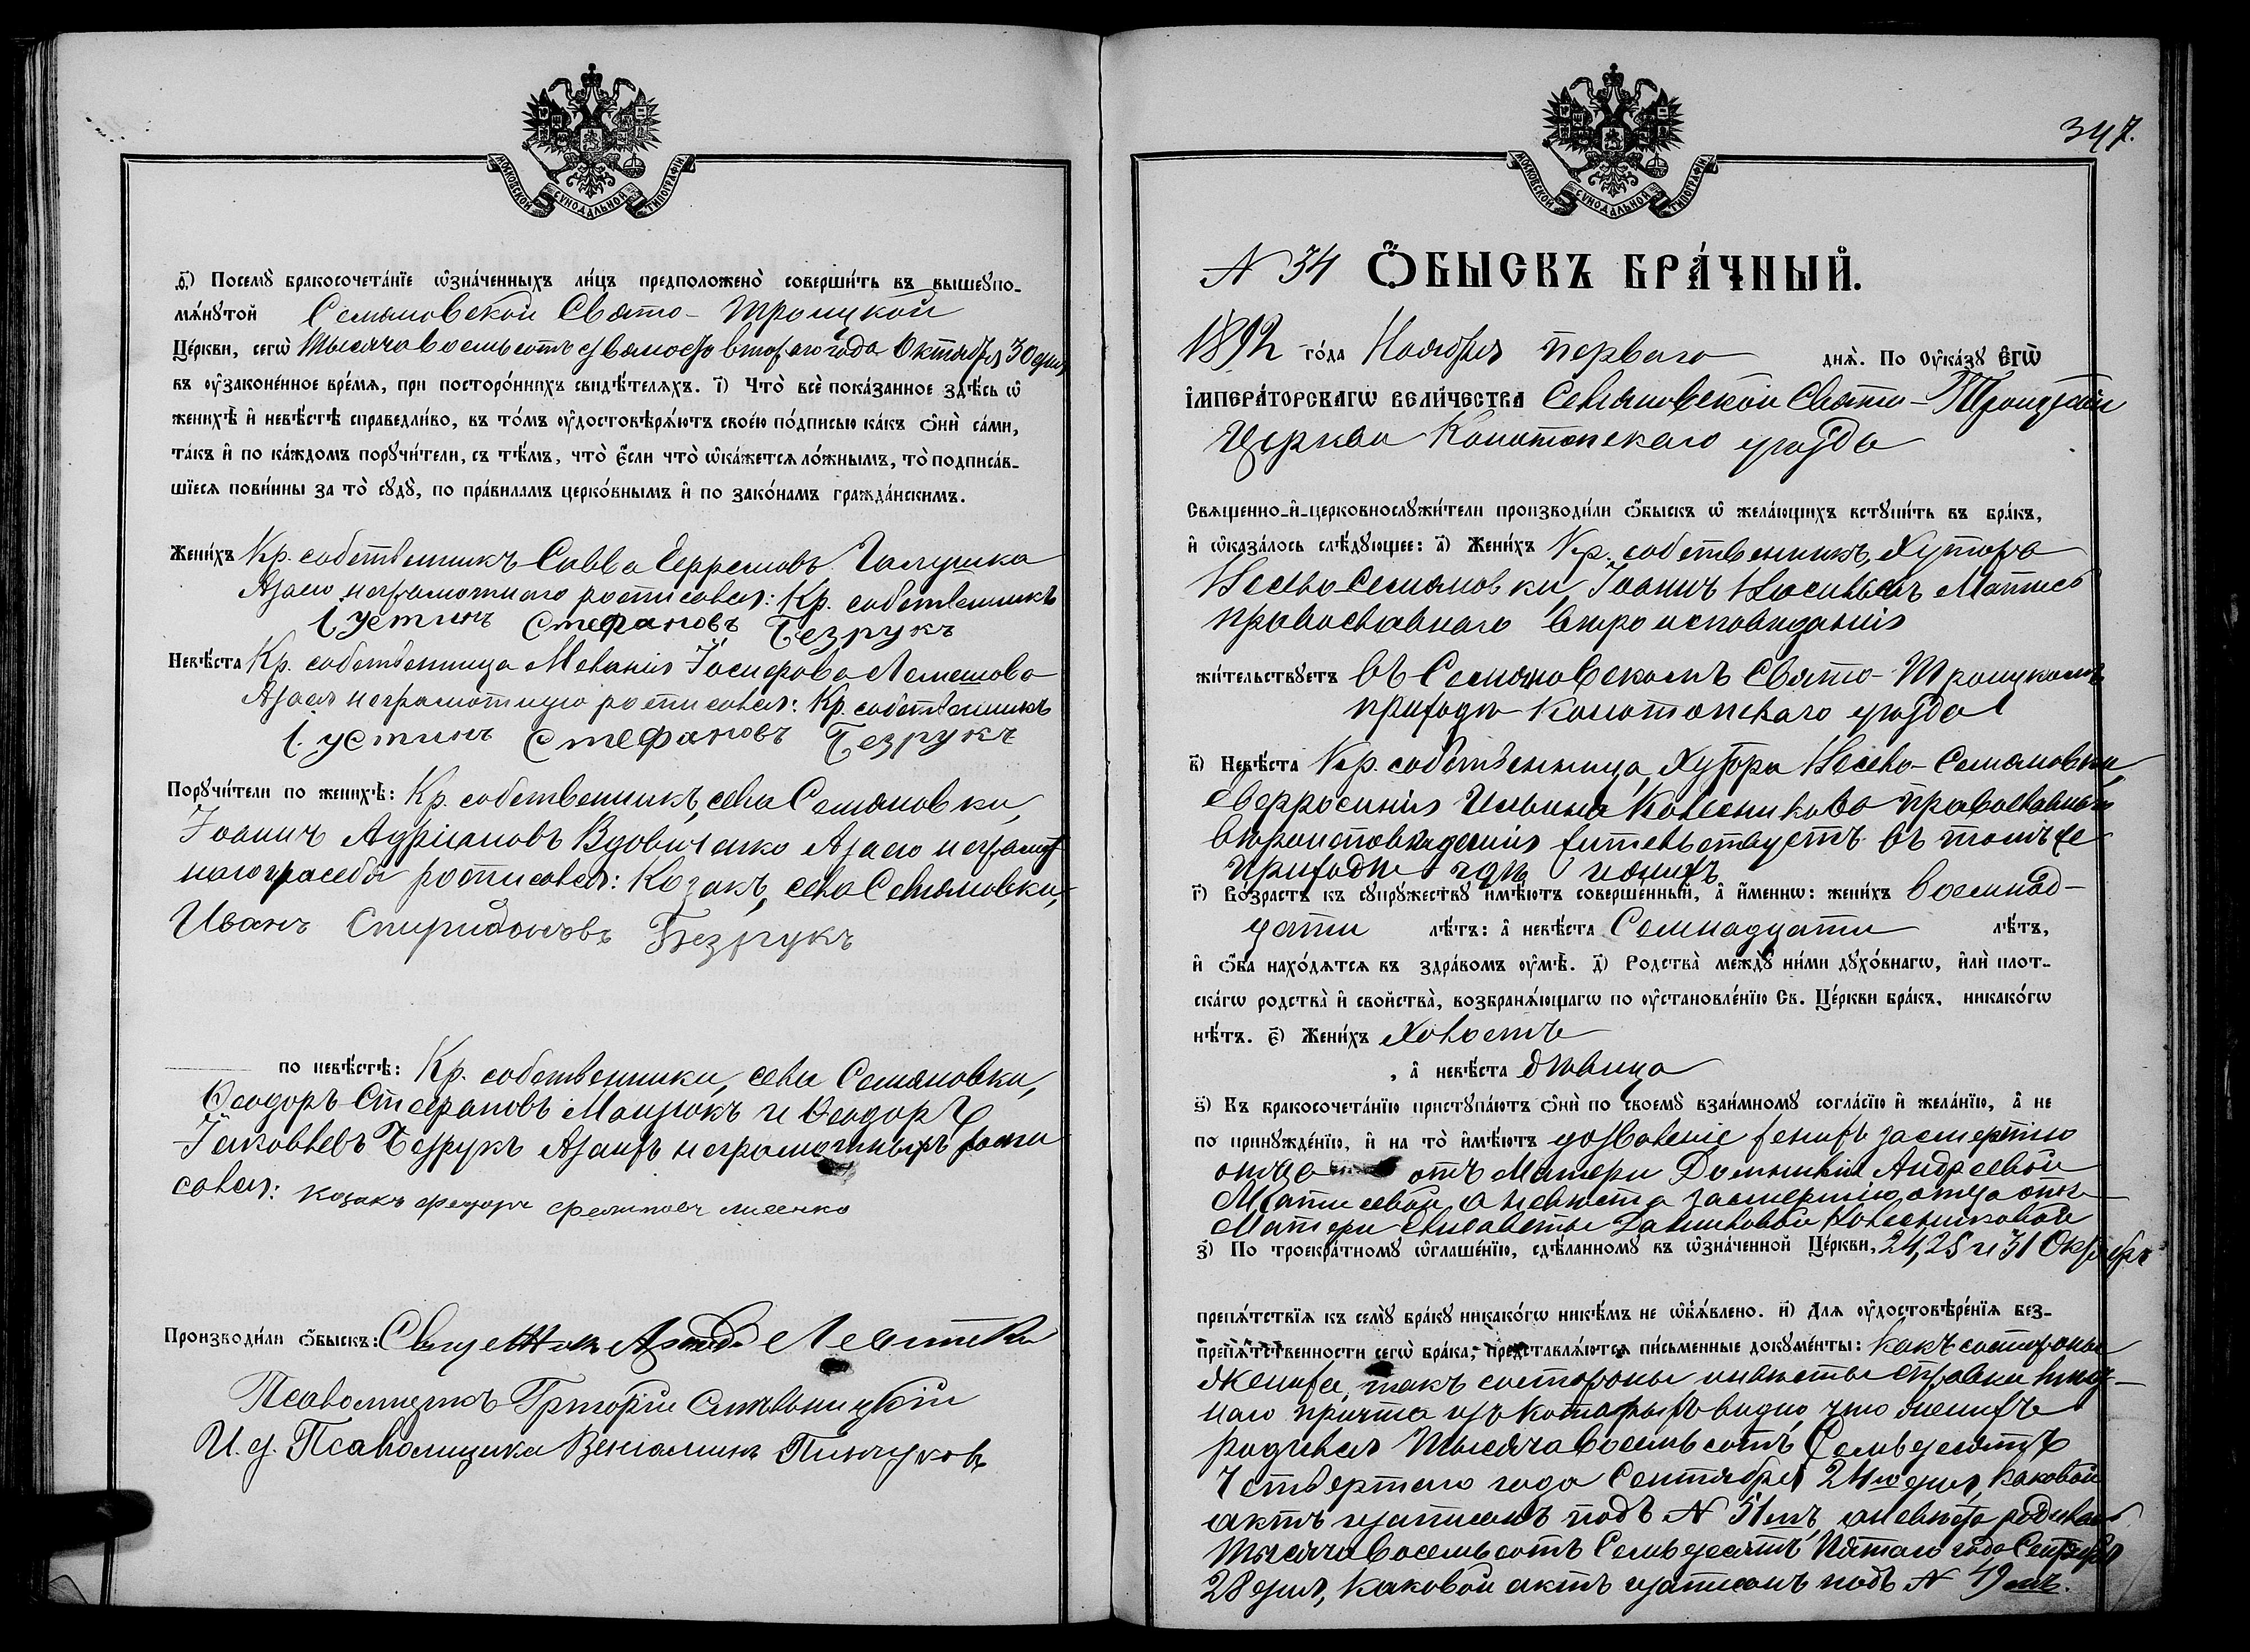 МОСКОВСКОЙ СѴНОДАЛЬНОЙ ТИПОГРАФІИ
д҃) Посемꙋ̀ бракосочета́нїе ѡ҆зна́ченныхъ ли́цъ предположено̀ соверши́ть въ вышеꙋпо-
мѧ́нꙋтой Семяновской Свято-Троицкой
Це́ркви, сегѡ̀ Тысяча восемьсотъ девяносто втораго года Октября 30 дня
въ ѹ҆законе́нное вре́мя, при посторо́ннихъ свидѣ́телѧхъ. і҃) Что̀ всѐ пока́занное здѣ́сь ѡ҆
женихѣ̀ и҆ невѣ́стѣ справедли́во, въ то́мъ ѹ҆достовѣрѧ́ютъ свое́ю по́дписью ка́къ ѻ҆нѝ са́ми,
та́къ и҆ по ка́ждомъ порꙋчи́тели, съ тѣ́мъ, что̀ є҆́сли что̀ ѡ҆ка́жетсѧ ло́жнымъ, то̀ подписа́в-
шїесѧ пови́нны за то̀ сꙋдꙋ̀, по пра́виламъ церко́внымъ и҆ по зако́намъ гражда́нскимъ.
Жени́хъ Кр. собственникъ Савва Ефремовъ Галушка
А за него неграмотнаго росписался: Кр. собственникъ
Іустинъ Стефановъ Безрукъ
Невѣ́ста Кр. собственница Меланія Іосифова Лемешова
А за нея неграмотную росписался: Кр. собственникъ
Іустинъ Стефановъ Безрукъ
Порꙋчи́тели по женихѣ̀: Кр. собственникъ, села Семяновки,
Іоаннъ Адріановъ Вдовиченко А за него неграмот
наго и за себя росписался: Козакъ, села Семяновки,
Иванъ Спиридоновъ Безрукъ
по невѣ́стѣ: Кр. собственники, села Семяновки,
Ѳеодоръ Стефановъ Мацюкъ и Ѳеодоръ
Іаковлевъ Безрукъ А за ихъ неграмотныхъ роспи
сался: козакъ Федоръ Филиповъ лисенко
Производи́ли ѻ҆́быскъ: Священникъ Левитскій
Псаломщикъ Григорій
И. д. Псаломщика Веніаминъ Пинчуковъ
347.
МОСКОВСКОЙ СѴНОДАЛЬНОЙ ТИПОГРАФІИ
N 34 Ѻ҆́БЫСКЪ БРА́ЧНЫЙ.
1892 го́да Ноября перваго днѧ̀. По ѹ҆ка́зꙋ є҆гѡ̀
і҆мпера́торскагѡ вели́чества Семяновской Свято-Троицкой
Церкви Конотопскаго уѣзда
Свѧщенно-и҆-церковнослꙋжи́тели производи́ли ѻ҆́быскъ ѡ҆ жела́ющихъ встꙋпи́ть въ бра́къ,
и҆ ѡ҆каза́лось слѣ́дꙋющее: а҃) Жени́хъ Кр. собственникъ, Хутора
Семяновки, Іоаннъ
православнаго вѣроисповѣданія
жи́тельствꙋетъ въ Семяновскомъ Свято-Троицкомъ
приходѣ Конотопскаго уѣзда
в҃) Невѣ́ста Кр. собственница, Хутора Семяновки,
Евфросинія Ильина Колесникова православнаго
вѣроисповѣданія жительствуетъ въ томъ же
приходѣ гдѣ и женихъ
г҃) Во́зрастъ къ сꙋпрꙋжествꙋ и҆мѣ́ютъ соверше́нный, а҆ и҆́меннѡ: жени́хъ восемнад-
цати лѣ́тъ: а҆ невѣ́ста Семнадцати лѣ́тъ,
и҆ ѻ҆́ба нахо́дѧтсѧ въ здра́вомъ ѹ҆мѣ̀. д҃) Родства̀ междꙋ̀ ни́ми дꙋхо́внагѡ, и҆лѝ плот-
ска́гѡ родства̀ и҆ свойства̀, возбранѧ́ющагѡ по ѹ҆становле́нїю Св. Це́ркви бра́къ, никако́гѡ
нѣ́тъ. є҃) Жени́хъ Холостъ
, а҆ невѣ́ста дѣвица
ѕ҃) Къ бракосочета́нїю пристꙋпа́ютъ ѻ҆нѝ по своемꙋ̀ взаи́мномꙋ согла́сїю и҆ жела́нїю, а҆ не
по принꙋжде́нїю, и҆ на то̀ и҆мѣ́ютъ дозволеніе женихъ за смертію
отца отъ Матери Домникіи Андреевой
а невѣста за смертію отца отъ
Матери Елисаветы Даниловой Колесниковой
з҃) По троекра́тномꙋ ѡ҆глаше́нїю, сдѣ́ланномꙋ въ ѡ҆зна́ченной Це́ркви, 24, 25 и 31 Октября
препѧ́тствїѧ къ семꙋ̀ бра́кꙋ никако́гѡ никѣ́мъ не ѡ҆б̾ѧ́влено. и҃) Для ѹ҆достовѣре́нїѧ без-
препѧ́тственности сегѡ̀ бра́ка, представлѧ́ютсѧ пи́сьменные докꙋме́нты: какъ со стороны
жениха, такъ со стороны невѣсты справки
наго причта изъ которыхъ видно, что женихъ
родился Тысяча восемьсотъ Семьдесятъ
Четвертаго года Сентября 24го дня, каковой
актъ записанъ подъ N 51мъ, а невѣста родилась
Тысяча восемьсотъ Семьдесятъ Пятаго года Сентября
28 дня, каковой актъ записанъ подъ N 49мъ.